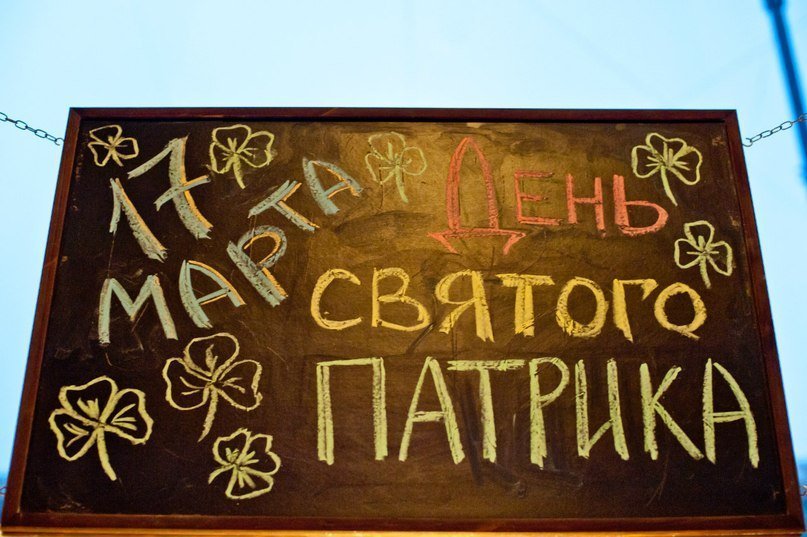 17
МАРТА
ДЕНЬ
СВЯТОГО
ПАТРИКА